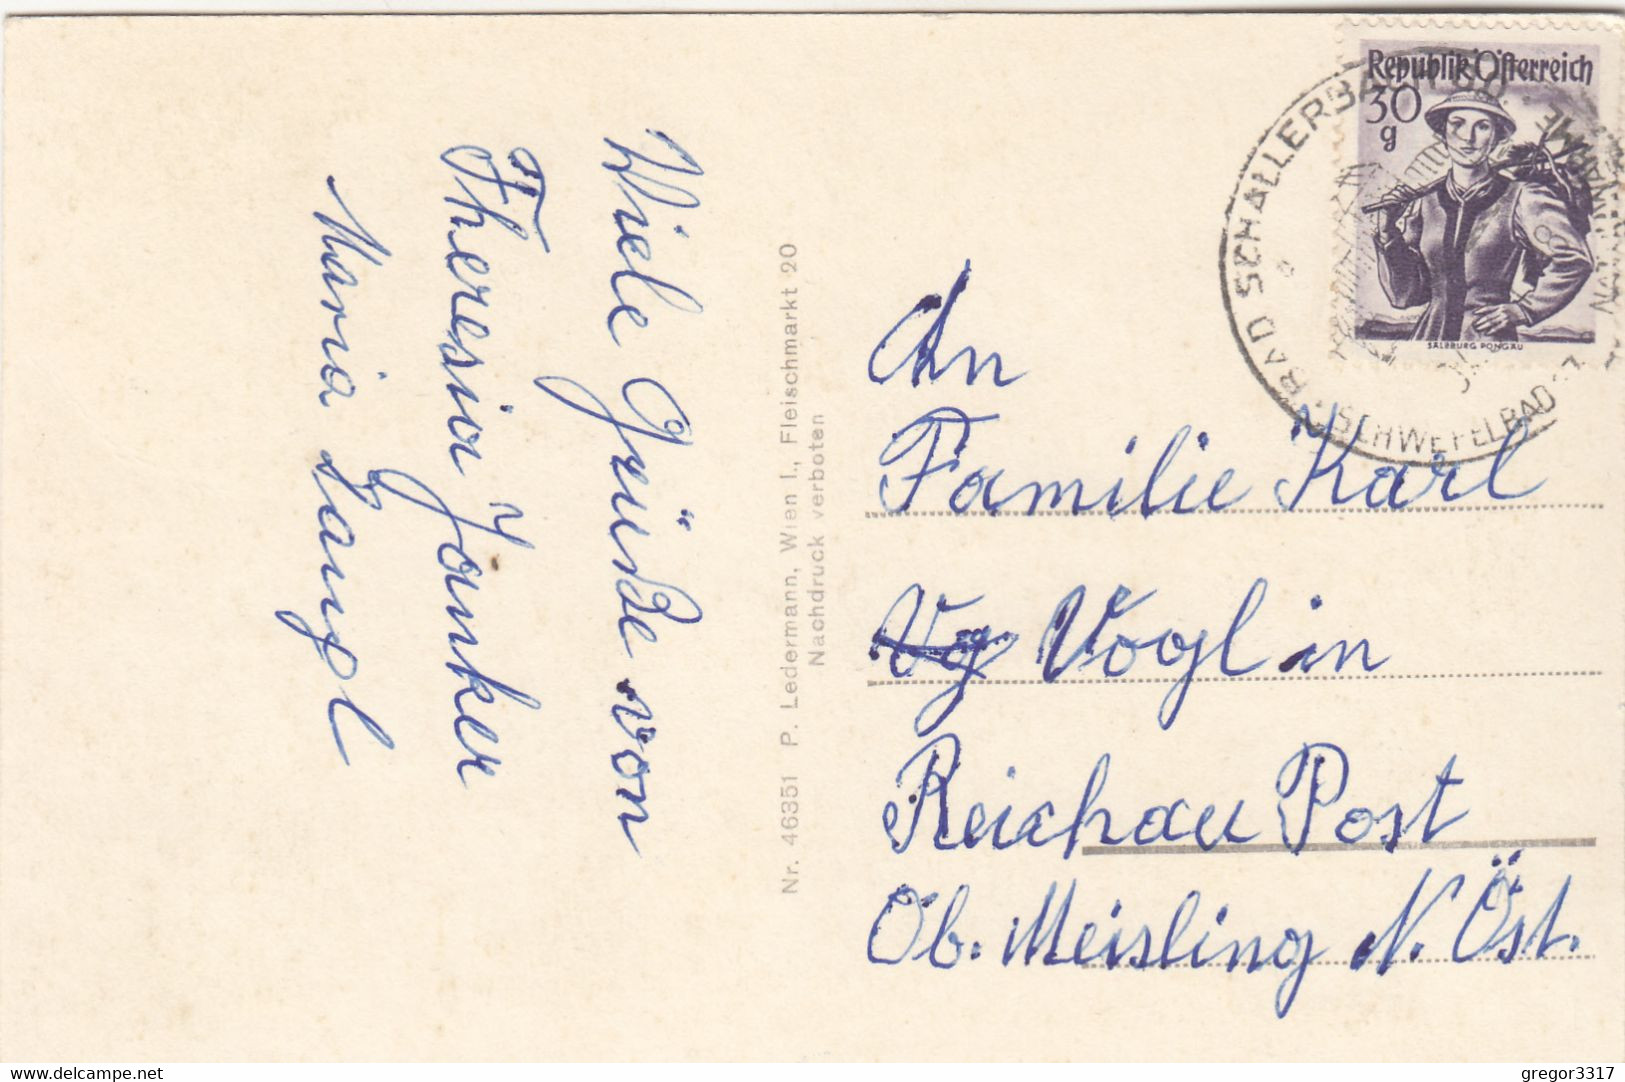 Viele Grüße von
Theresia Janker
Maria Langl
Nr. 46351 P. Ledermann, Wien I., Fleischmarkt 20
Nachdruck verboten
Republik Österreich
30
g
SALZBURG PONGAU
BAD SCHALLERBACH
SCHWEFELBAD
An
Familie Karl
Vg Vogl in
Reichau Post
Ob. Meisling N. Öst.
gregor3317